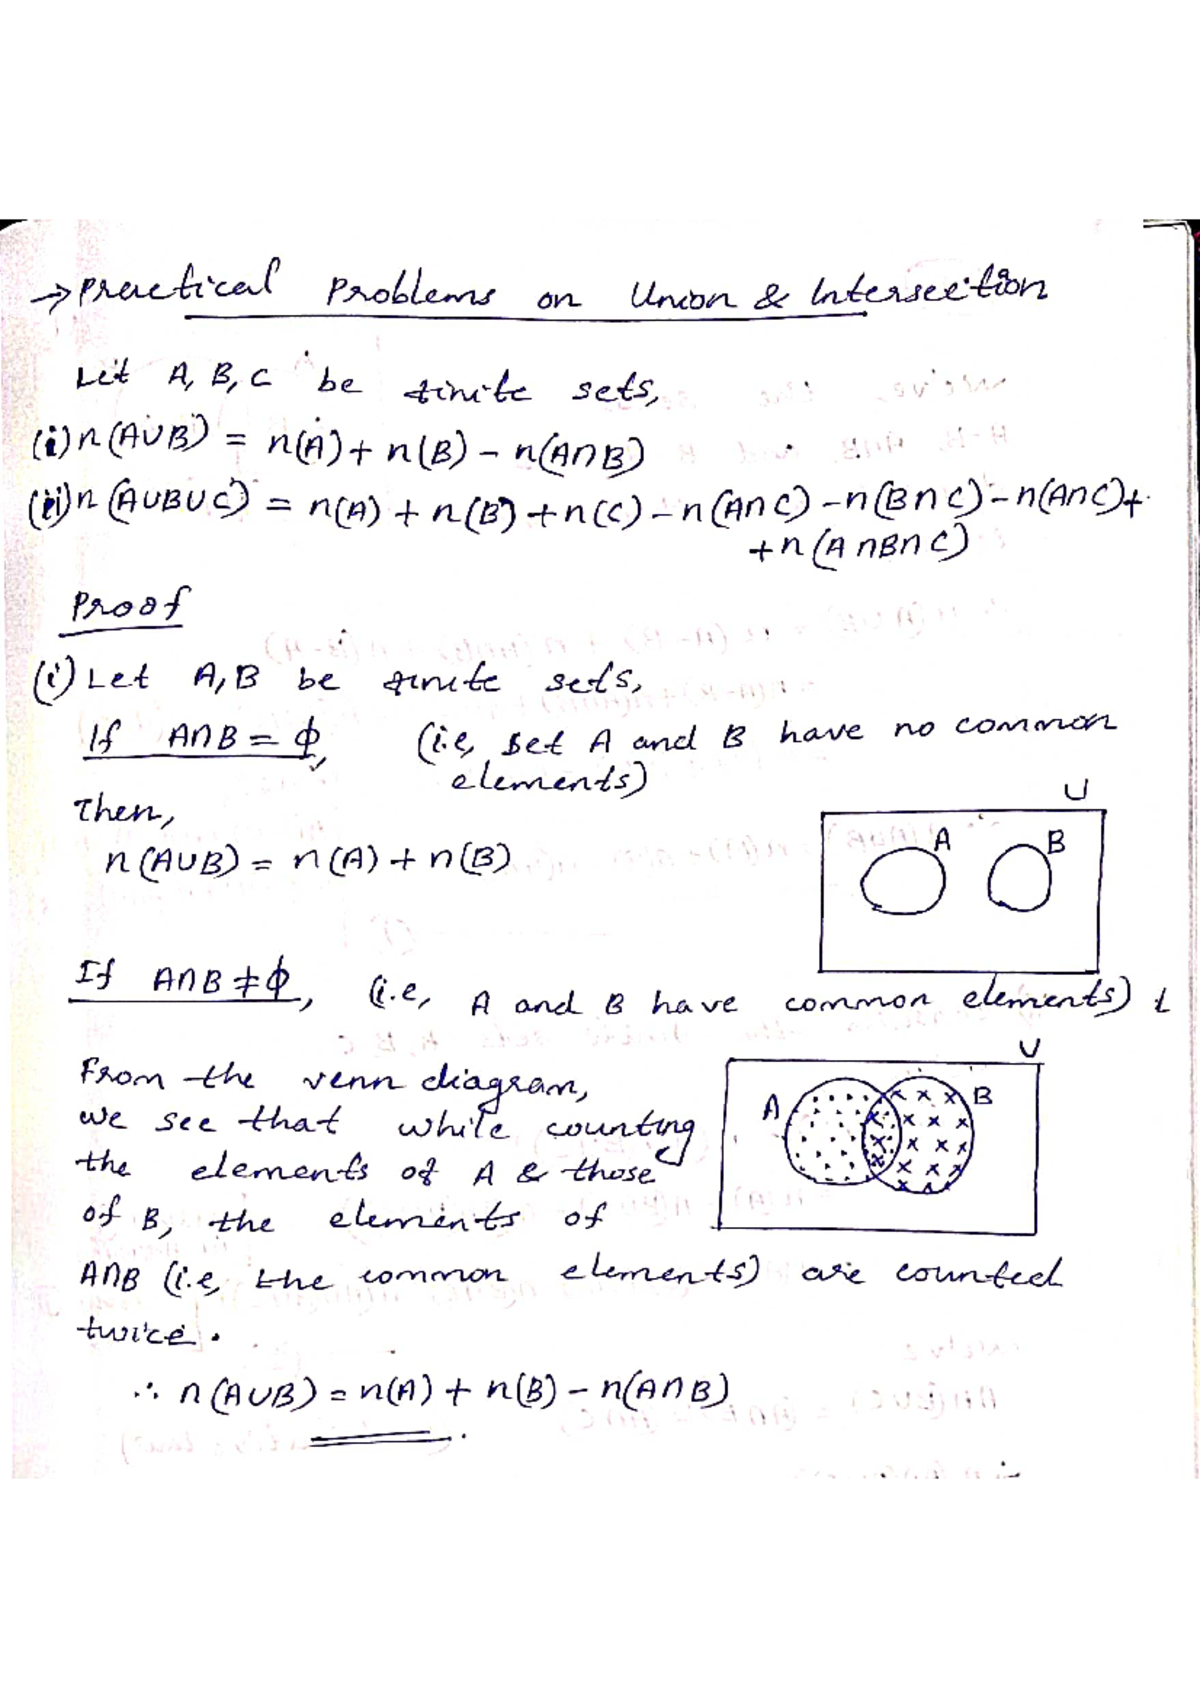 → Practical Problems on Union & Intersection
Let A, B, C be finite sets,
(i) n(A∪B) = n(A) + n(B) - n(A∩B)
(ii) n(A∪B∪C) = n(A) + n(B) + n(C) - n(A∩C) - n(B∩C) - n(A∩C) +
+ n(A∩B∩C)
Proof
(i) Let A, B be finite sets,
If A∩B = ϕ, (i.e, set A and B have no common
elements)
Then,
n(A∪B) = n(A) + n(B)
U
A B
If A∩B ≠ ϕ, (i.e, A and B have common elements)
From the venn diagram,
we see that while counting
the elements of A & those
of B, the elements of
U
A B
A∩B (i.e, the common elements) are counted
twice.
∴ n(A∪B) = n(A) + n(B) - n(A∩B)